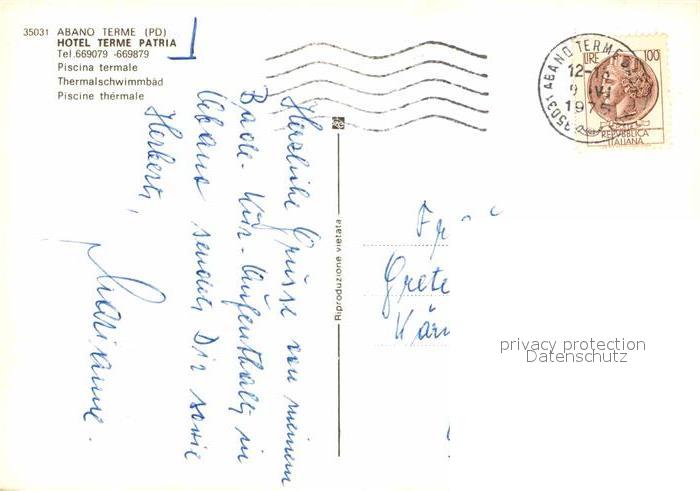 35031 ABANO TERME (PD)
HOTEL TERME PATRIA
Tel. 669079 -669879
Piscina termale
Thermalschwimmbäd
Piscine thérmale
Herzliche Grüsse von meinem
Bade-Kur-Aufenthalt in
Abano sendet Dir sowie
Herbert,
Marianne.
Riproduzione vietata
35031 ABANO TERME
12-1
9
197
LIRE 100
REPVBBLICA
ITALIANA
Fr
Grete
Kär
privacy protection
Datenschutz